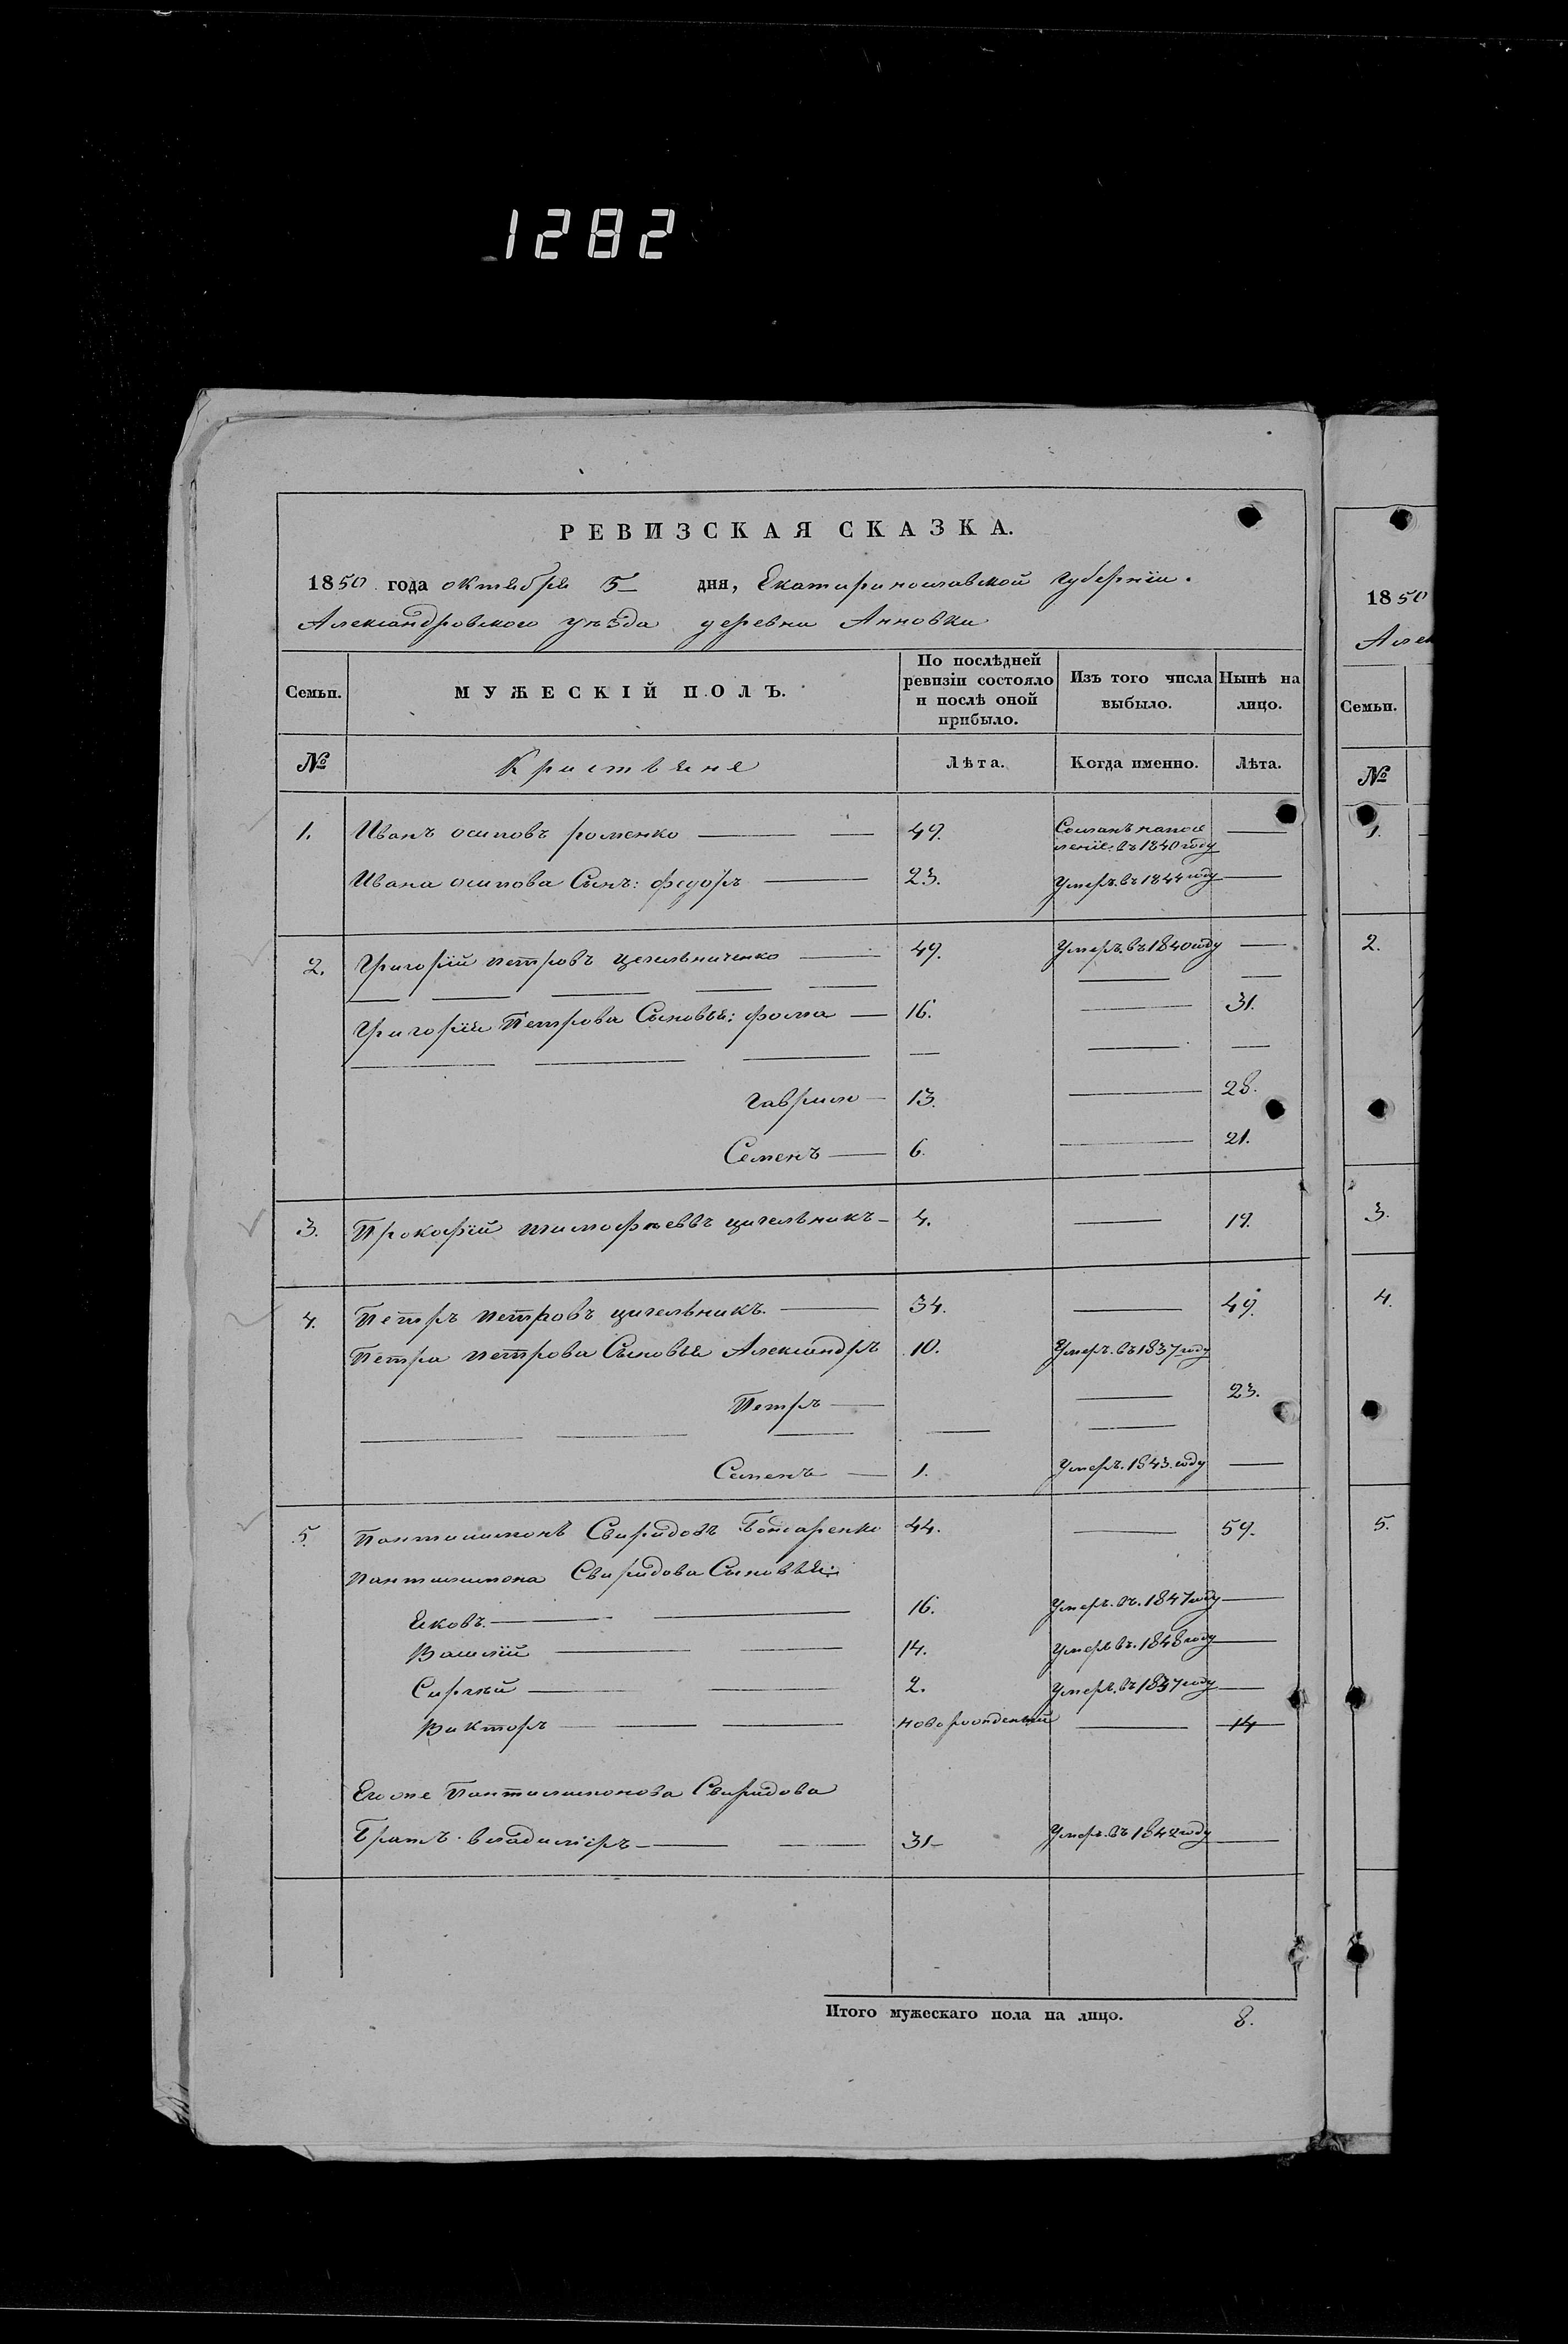 1282
РЕВИЗСКАЯ СКАЗКА.
1850 года октября 5 дня, Екатеринославской губернiи.
Александровского уѣзда деревни Анновки
Семьи. МУЖЕСКІЙ ПОЛЪ. По послѣдней ревизіи состояло и послѣ оной прибыло. Изъ того числа выбыло. Нынѣ на лицо.
№ Кристяне Лѣта. Когда именно. Лѣта.
1. Иванъ осиповъ роменко 49. Сосланъ на посе
ленiе въ 1840 году
Ивана осипова Сынъ: федоръ 23. Умеръ въ 1844 году
2. Григорiй петровъ цегельниченко 49. Умеръ въ 1840 году
Григорiя Петрова Сыновья: фома 16. 31.
гаврило 13. 28.
Семенъ 6. 21.
3. Прокофiй тимофѣевъ цигельникъ 4. 19.
4. Петръ петровъ цигельникъ. 34. 49.
Петра петрова Сыновья Александръ 10. Умеръ въ 1837 году
Петръ 23.
Семенъ 1. Умеръ. 1843. году
5. Пантилимонъ Свиридовъ Бондаренко 44. 59.
Пантилимона Свиридова Сыновья:
Яковъ 16. Умеръ. въ. 1847 году
Василiй 14. Умеръ въ. 1848 году
Сиргѣй 2. Умеръ. въ 1837 году
Викторъ новорожденный 14
Егоже Пантилимонова Свиридова
Братъ владимiръ 31 Умеръ въ 1842 году
Итого мужескаго пола на лицо. 8.
1850
Алек
Семьи.
№
1.
2.
3.
4.
5.